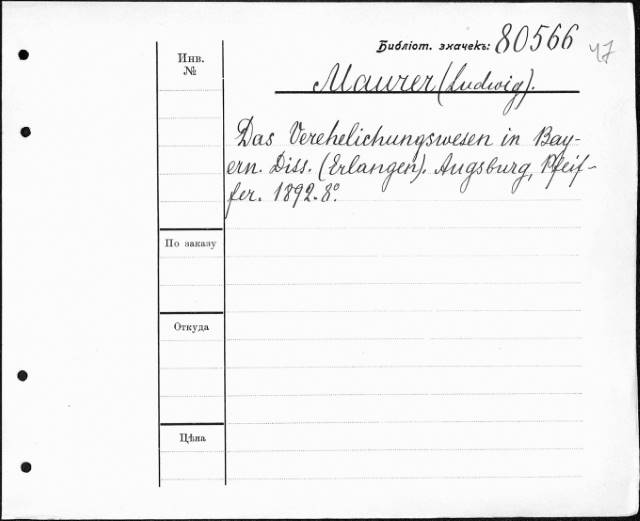 Библіот. значекъ: 80566
47
Инв.
№
Maurer (Ludwig).
Das Verehelichungswesen in Bay-
ern. Diss. (Erlangen). Augsburg, Pfeif-
fer. 1892. 8°.
По заказу
Откуда
Цѣна